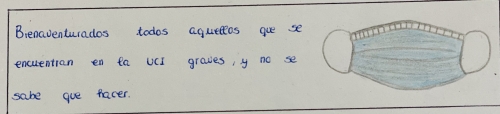 Bienaventurados todos aquellos que se
encuentran en la UCI graves, y no se
sabe que hacer.